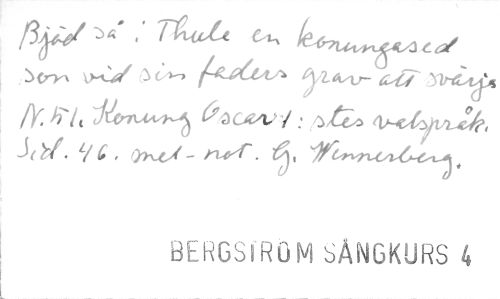 Bjöd så i Thule en konungased
son vid sin faders grav att svärja
N. 51. Konung Oscar I:stes valspråk.
Sid. 46. mel-not. G. Wennerberg.
BERGSTRÖM SÅNGKURS 4